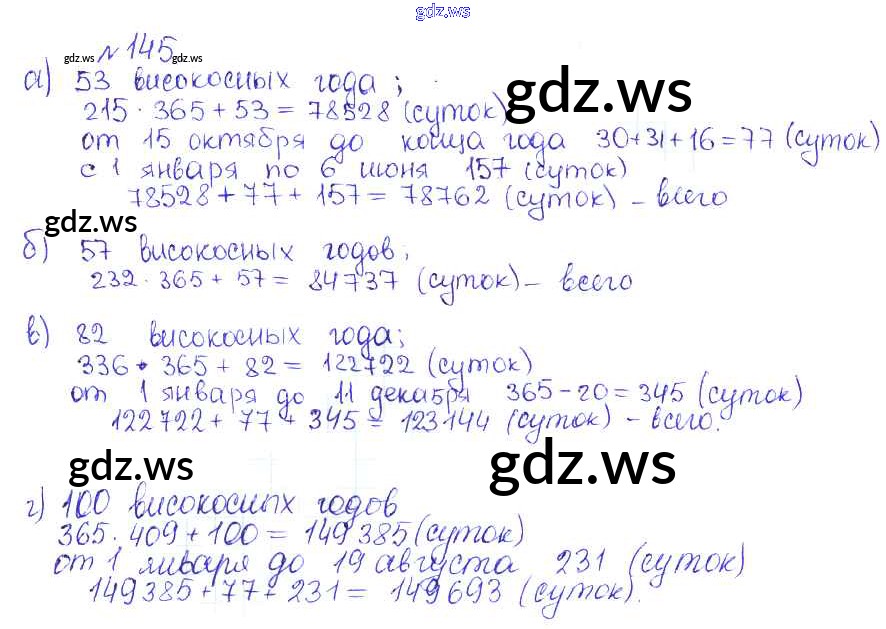 gdz.ws
gdz.ws № 145 gdz.ws
а) 53 високосных года;
gdz.ws
215 · 365 + 53 = 78528 (суток)
от 15 октября до конца года 30+31+16=77 (суток)
с 1 января по 6 июня 157 (суток)
78528 + 77 + 157 = 78762 (суток) - всего
gdz.ws
б) 57 високосных годов;
232 · 365 + 57 = 84737 (суток) - всего
в) 82 високосных года;
336 · 365 + 82 = 122722 (суток)
от 1 января до 11 декабря 365-20=345 (суток)
122722 + 77 + 345 = 123144 (суток) - всего.
gdz.ws gdz.ws
г) 100 високосных годов
365 · 409 + 100 = 149385 (суток)
от 1 января до 19 августа 231 (суток)
149385 + 77 + 231 = 149693 (суток).